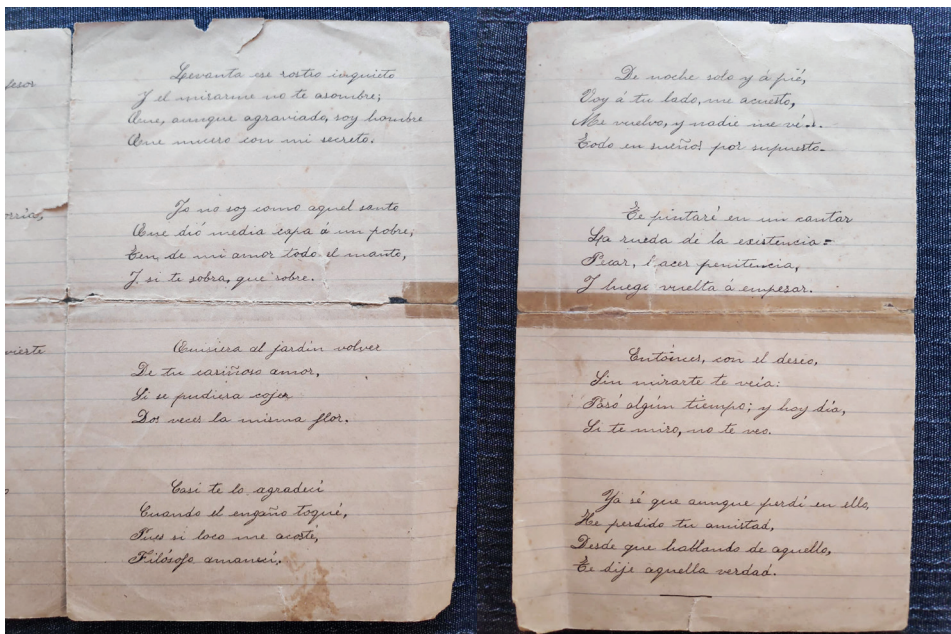 fesor
orrico,
vierte
Levanta ese rostro inquieto
Y el mirarme no te asombre;
Que, aunque agraviado, soy hombre
Que muero con mi secreto.
Yo no soy como aquel santo
Que dió media capa á un pobre;
Ten, de mi amor todo el manto,
Y, si te sobra, que sobre.
Quisiera al jardin volver
De tu cariñoso amor,
Si se pudiera cojer
Dos veces la misma flor.
Casi te lo agradecí
Cuando el engaño toqué,
Pues si loco me acosté,
Filósofo amanecí.
De noche solo y á pié,
Voy á tu lado, me acuesto,
Me vuelvo, y nadie me vé...
Todo en sueños por supuesto.
Te pintaré en un cantar
La rueda de la existencia:
Pecar, hacer penitencia,
Y luego vuelta á empesar.
Entónces, con el deseo,
Sin mirarte te veia:
Pasó algún tiempo; y hoy dia,
Si te miro, no te veo.
Ya sé que aunque perdí en ello,
He perdido tu amistad,
Desde que hablando de aquello,
Te dije aquella verdad.